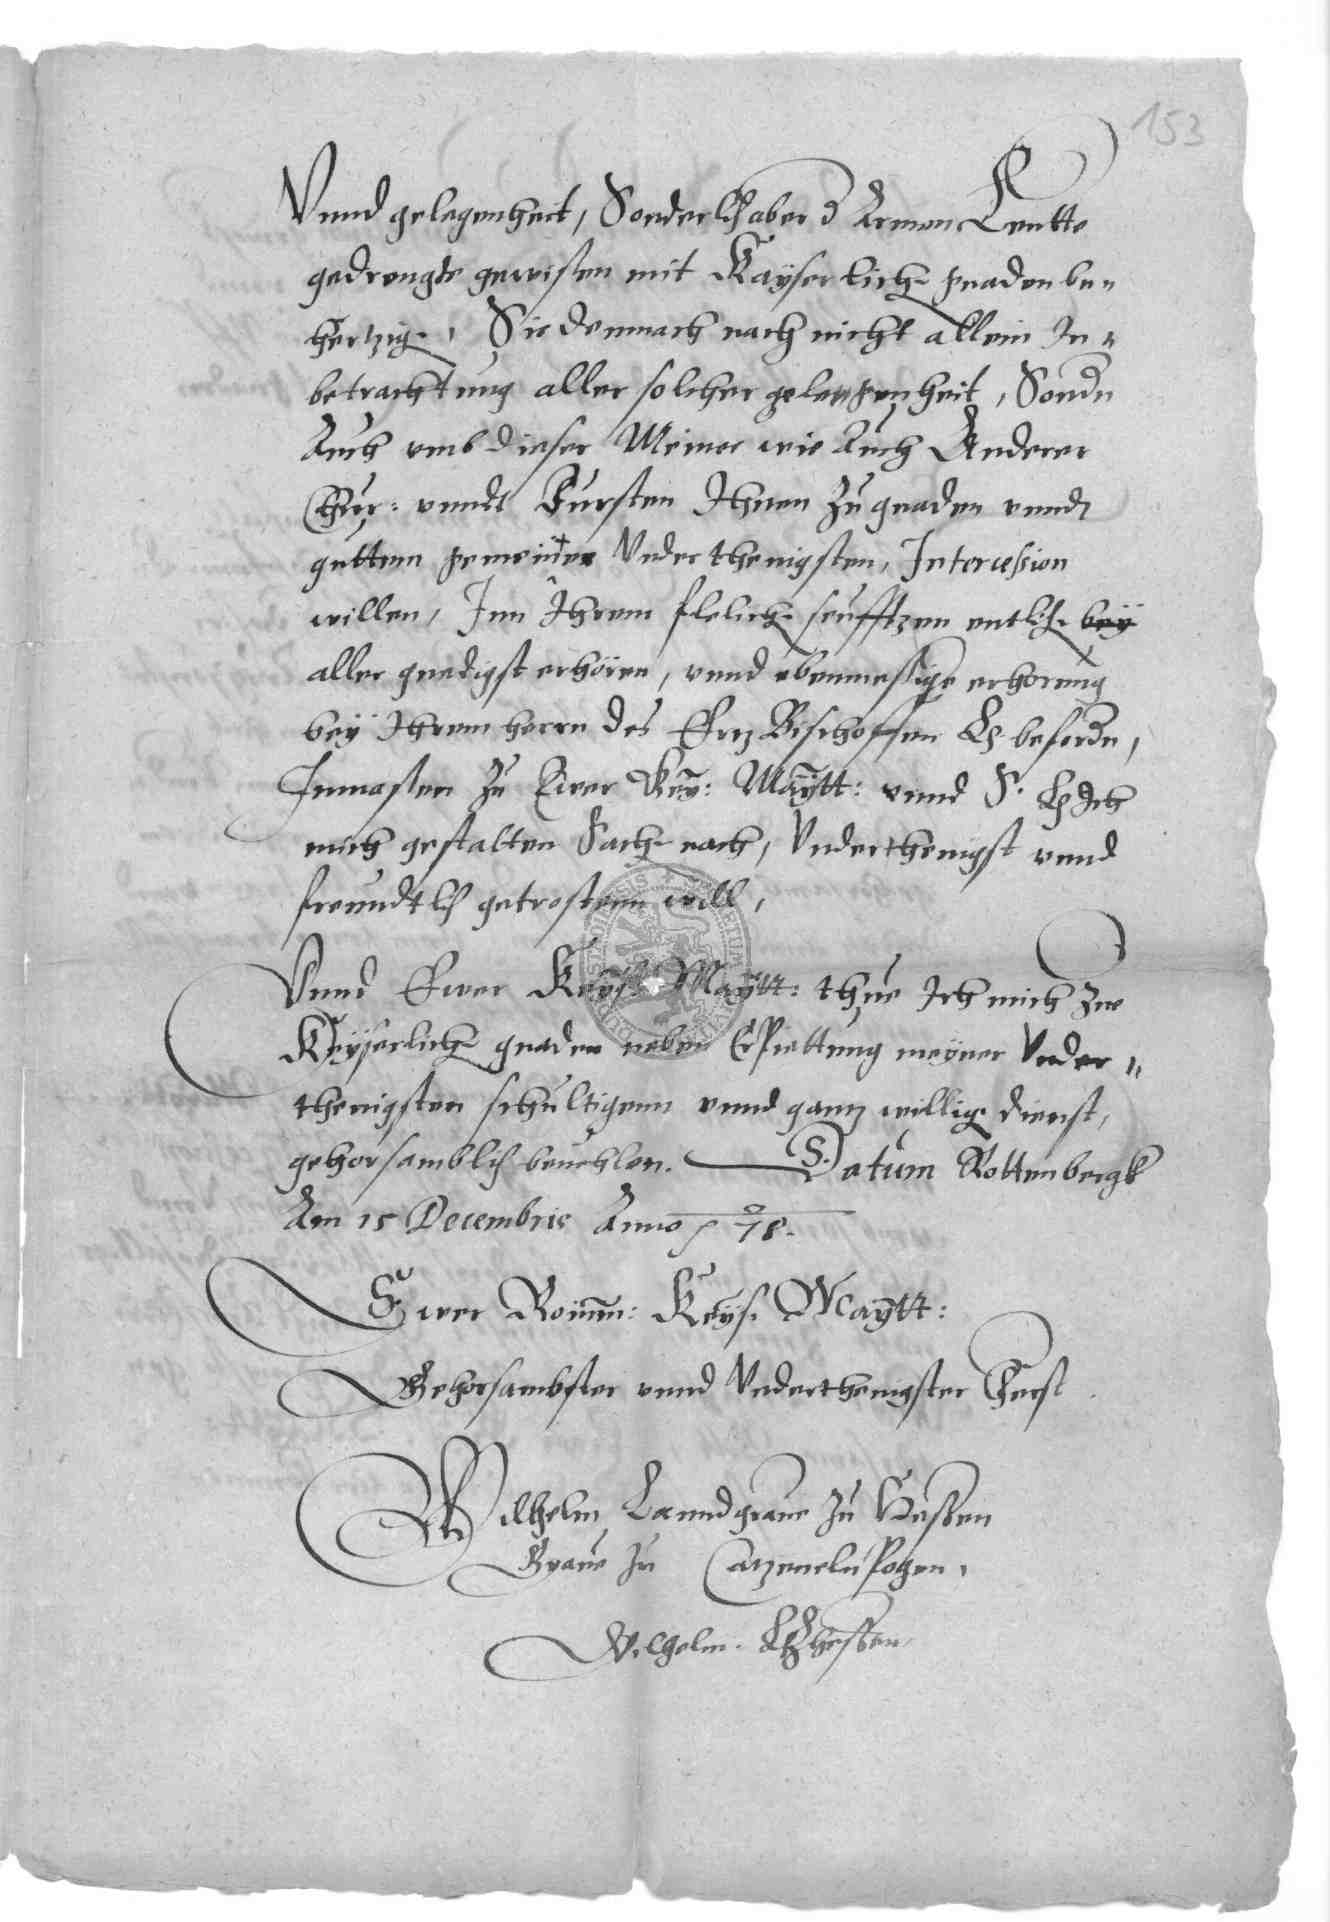 153
Vnnd gelegenheit, Sonderlich aber d Armen Leutte
gedrengte gewissen mit Kayserlich gnaden be„
hertzig, Sie demnach nach nicht allein In„
betrachtung aller solcher gelegenheit, Sondn
Auch vmb dieser Meiner wie Auch Anderer
Chur: vnndt Fursten Ihnen zu gnaden vnndt
guttem gemeinter Vnderthenigsten, Intercession
willen, Inn Ihrem flelich seufftzen entlich bey
aller gnedigst erhören, vnnd ebenmessige erhorung
bey Ihrem herrn des Ertz Bischoffen L. befordn,
Inmassen zu Ewer Key: Maytt: vnnd S. L. Ich
mich gestalten Sach nach, Vnderthenigst vnnd
freundtlich getrosten will,
Vnnd Ewer Keys. Maytt: thue Ich mich zue
Keyserlich gnaden neben Erbiettung meyner Vnder„
thenigsten schultigenn vnnd gantz willig dienst,
gehorsamblich beuehlen. Datum Rottenbergk
Am 15 Decembris Anno 78.
Ewer Römm: Keys. Maytt:
Gehorsambster vnnd Vnderthenigster Furst
Wilhelm Lanndgraue zu Hessen
Graue zu Catzenelnpogen,
Wilhelm L Z Hessen